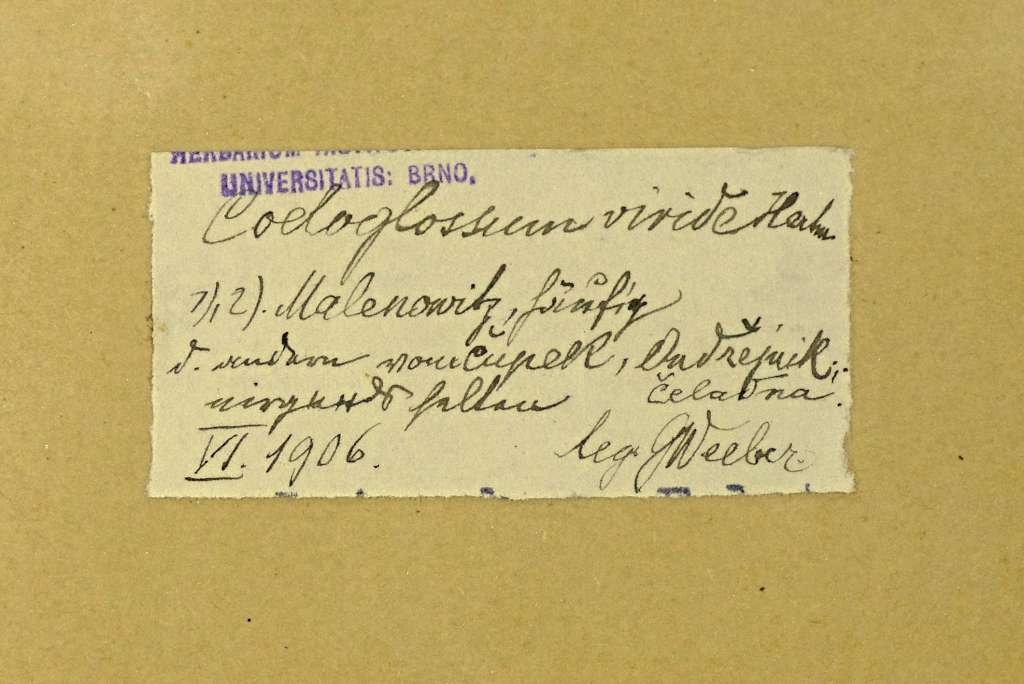 HERBARIUM
UNIVERSITATIS: BRNO.
Coeloglossum viride Hartm
1), 2). Malenowitz, häufig
d. andern vom Čupek, Ondřejnik,
nirgends selten Čeladna.
VI. 1906. leg. GWeeber.